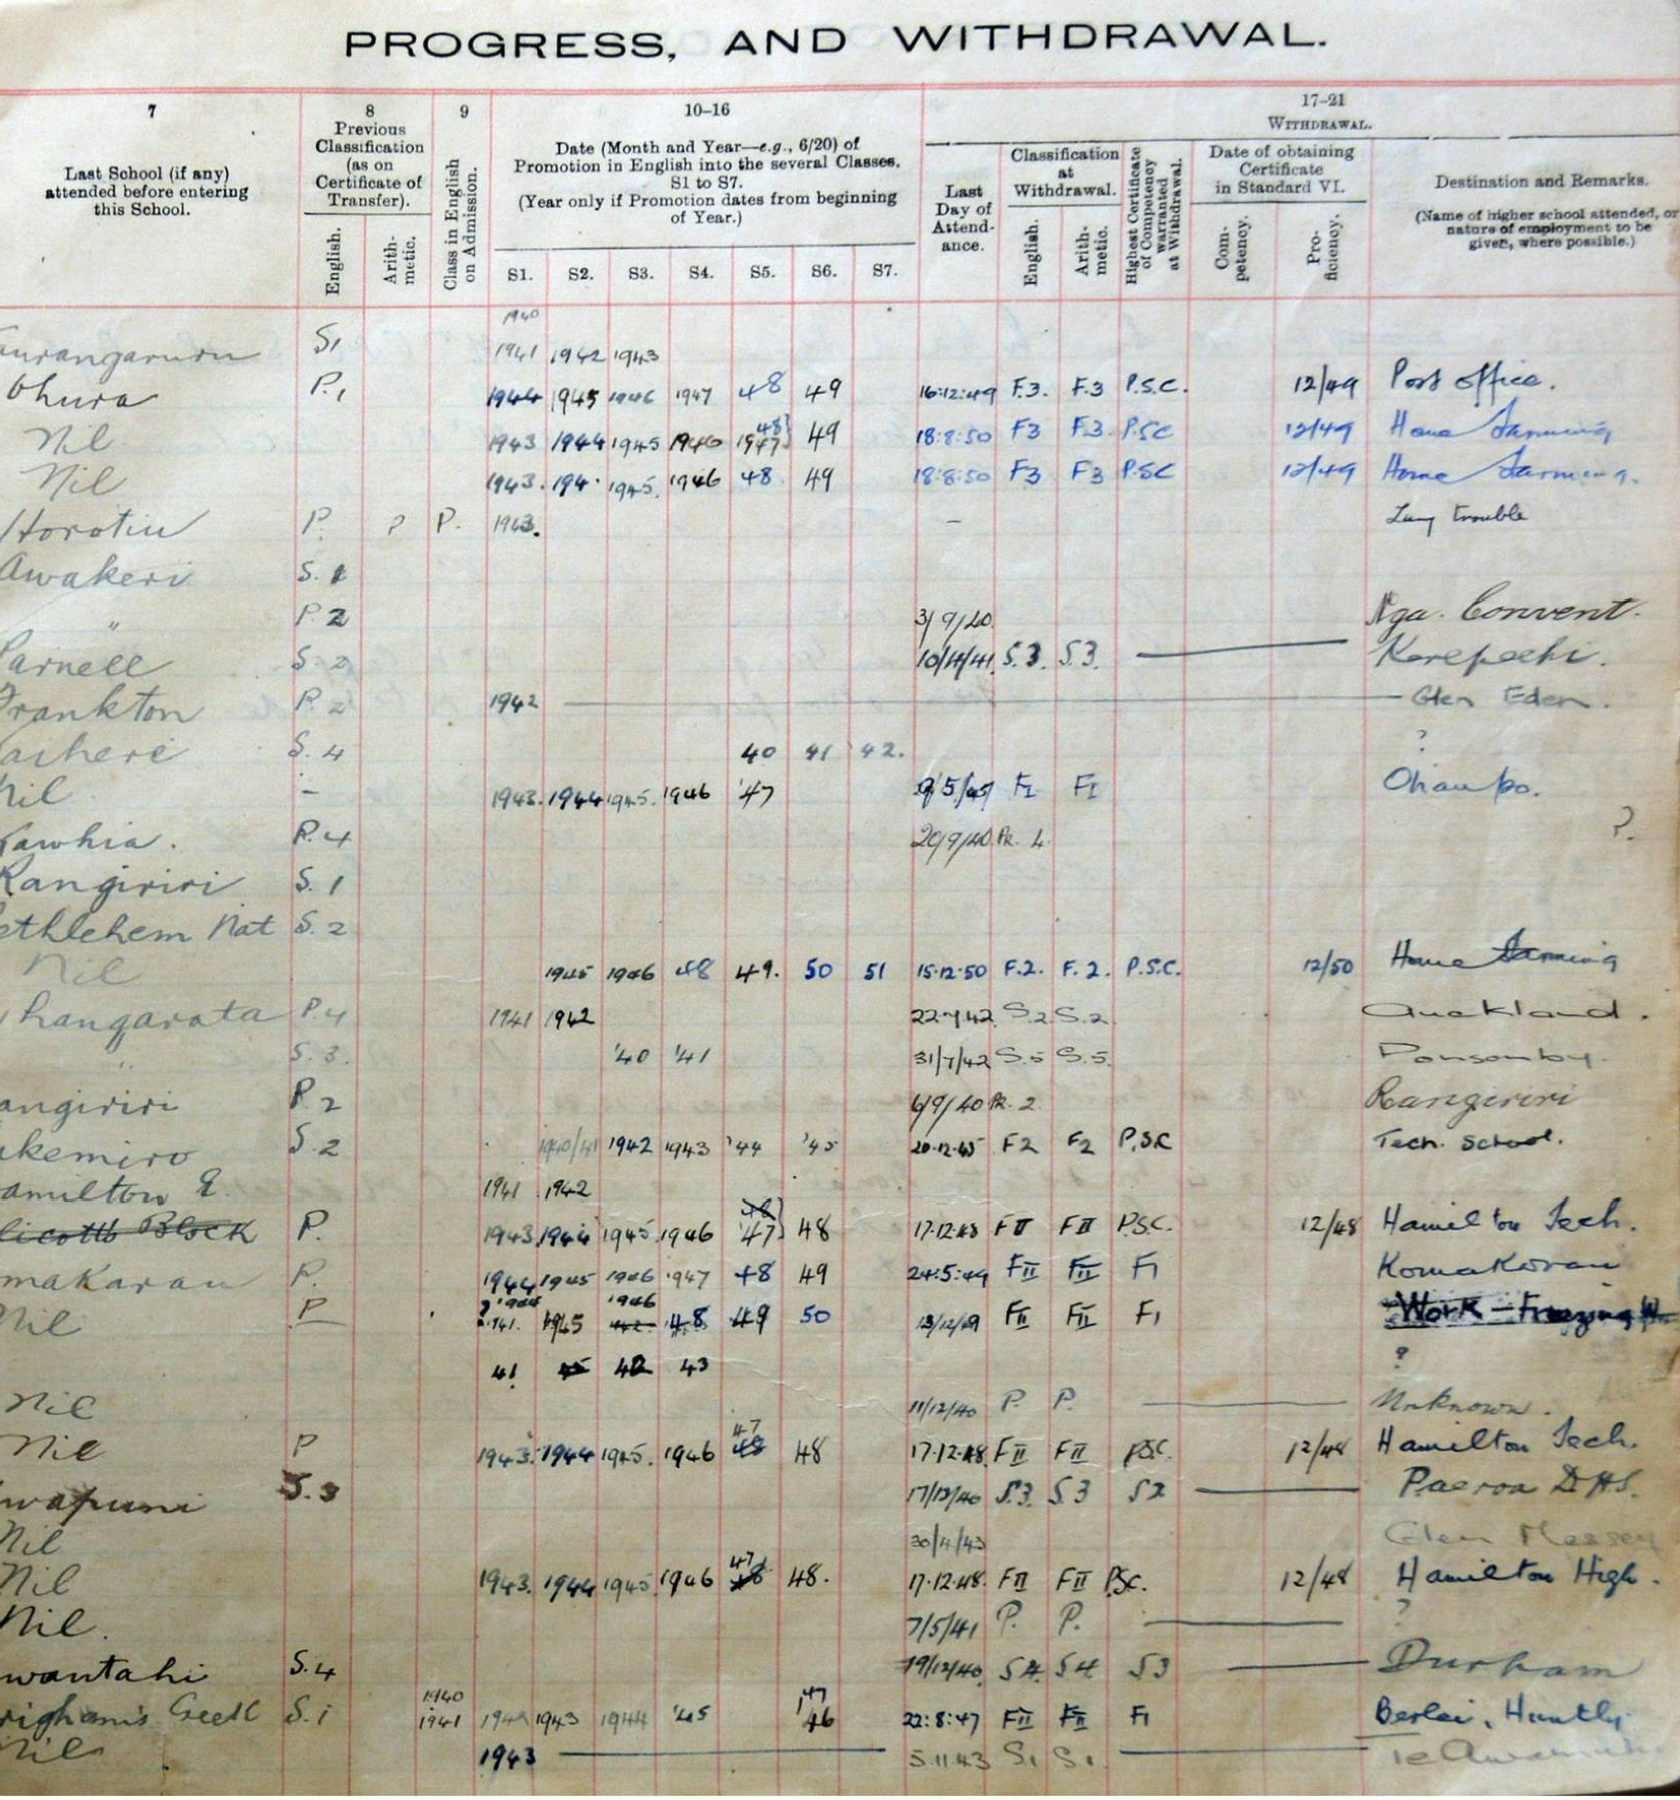 PROGRESS, AND WITHDRAWAL.
7 8 9 10–16 17–21
Last School (if any) attended before entering this School.
Previous Classification (as on Certificate of Transfer).
English.
Arith-metic.
Class in English on Admission.
Date (Month and Year—e.g., 6/20) of Promotion in English into the several Classes, S1 to S7.
(Year only if Promotion dates from beginning of Year.)
S1. S2. S3. S4. S5. S6. S7.
WITHDRAWAL.
Last Day of Attend-ance.
Classification at Withdrawal.
English.
Arith-metic.
Highest Certificate of Competency warranted at Withdrawal.
Date of obtaining Certificate in Standard VI.
Com-petency.
Pro-ficiency.
Destination and Remarks.
(Name of higher school attended, or nature of employment to be given, where possible.)
1940
S1 1941 1942 1943
Ohura P.1 1944 1945 1946 1947 48 49 16:12:49 F.3. F.3 P.S.C. 12/49 Post office.
Nil 1943 1944 1945 1946 1947 48} 49 18:8:50 F3 F3 PSC 12/49 Home Farming
Nil 1943. 194 1945. 1946 48 49 18:8:50 F3 F3 PSC 12/49 Home Farming.
Horotiu P. P P. 1943. – Lung trouble
Awakeri S.1
" P2 3/9/40 Nga. Convent.
Parnell S.2 10/4/41 S.3. S.3. — Kerepeehi.
Frankton P.2 1942 — Glen Eden.
S.4 40 41 42. ?
Nil – 1943. 1944 1945. 1946 '47 9/5/47 F1 F1 Ohaupo.
Kawhia. P.4 20/9/40 Pr. 4 ?.
Rangiriri S.1
ethlehem Nat S.2
Nil 1945 1946 48 49. 50 51 15.12.50 F.2. F.2. P.S.C. 12/50 Home Farming
hangarata P.4 1941 1942 S.2 S.2 Auckland.
" S.3. '40 '41 31/7/42 S.5 S.5. Ponsonby.
angiriri P.2 6/9/40 Pr. 2 Rangiriri
kemiro S.2 1940/41 1942 1943 '44 '45 20.12.45 F2 F2 P.S.C Tech. School.
amilton E. 1941 1942
licott Block P. 1943 1944 1945 1946 48 '47} 48 17.12.48 FII FII P.S.C. 12/48 Hamilton Tech.
makarau P. 1944 1945 1946 1947 48 49 24:5:49 FII FII F1 Komakorau
Nil P 1944 1941. 1945 1946 1942 48 49 50 13/12/49 FII FII F1 Work – Freezing
41 45 42 43 ?
Nil 11/12/40 P. P. — Unknown.
Nil P 1943. 1944 1945. 1946 47 48 48 17.12.48 FII FII PSC. 12/48 Hamilton Tech.
wapuni S.3 17/12/40 S.3. S.3 S2 — Paeroa D.H.S.
Nil 30/4/43 Glen Massey
Nil 1943. 1944 1945 1946 47 48 48. 17.12.48. FII FII PSC. 12/48 Hamilton High.
Nil. 7/5/41 P. P. — ?
wantahi S.4 19/12/40 S4 S4 S3 — Durham
righams Creek S.1 1940 1941 1942 1943 1944 '45 47 46 22:8:47 FII FII F1 Berlei, Huntly
Nil 1943 — 5.11.43 S1 S1 —